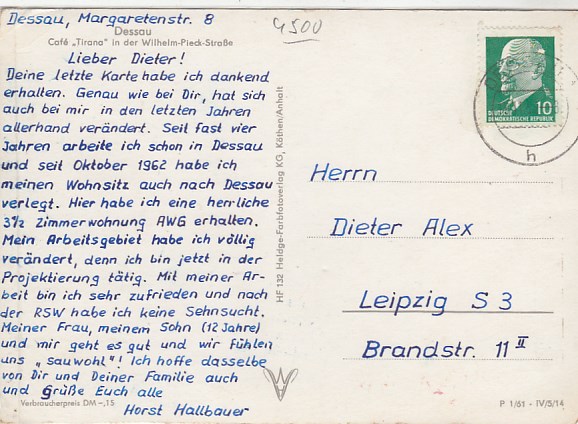 Dessau, Margaretenstr. 8
4500
Dessau
Café „Tirana" in der Wilhelm-Pieck-Straße
Lieber Dieter!
Deine letzte Karte habe ich dankend
erhalten. Genau wie bei Dir, hat sich
auch bei mir in den letzten Jahren
allerhand verändert. Seit fast vier
Jahren arbeite ich schon in Dessau
und seit Oktober 1962 habe ich
meinen Wohnsitz auch nach Dessau
verlegt. Hier habe ich eine herrliche
3½ Zimmerwohnung AWG erhalten.
Mein Arbeitsgebiet habe ich völlig
verändert, denn ich bin jetzt in der
Projektierung tätig. Mit meiner Ar-
beit bin ich sehr zufrieden und nach
der RSW habe ich keine Sehnsucht.
Meiner Frau, meinem Sohn (12 Jahre)
und mir geht es gut und wir fühlen
uns „sauwohl"! Ich hoffe dasselbe
von Dir und Deiner Familie auch
und Grüße Euch alle
Horst Hallbauer
Verbraucherpreis DM -,15
HF 132 Heldge-Farbfotoverlag KG, Köthen/Anhalt
10
DEUTSCHE
DEMOKRATISCHE REPUBLIK
h
Herrn
Dieter Alex
Leipzig S 3
Brandstr. 11 II
P 1/61 - IV/5/14